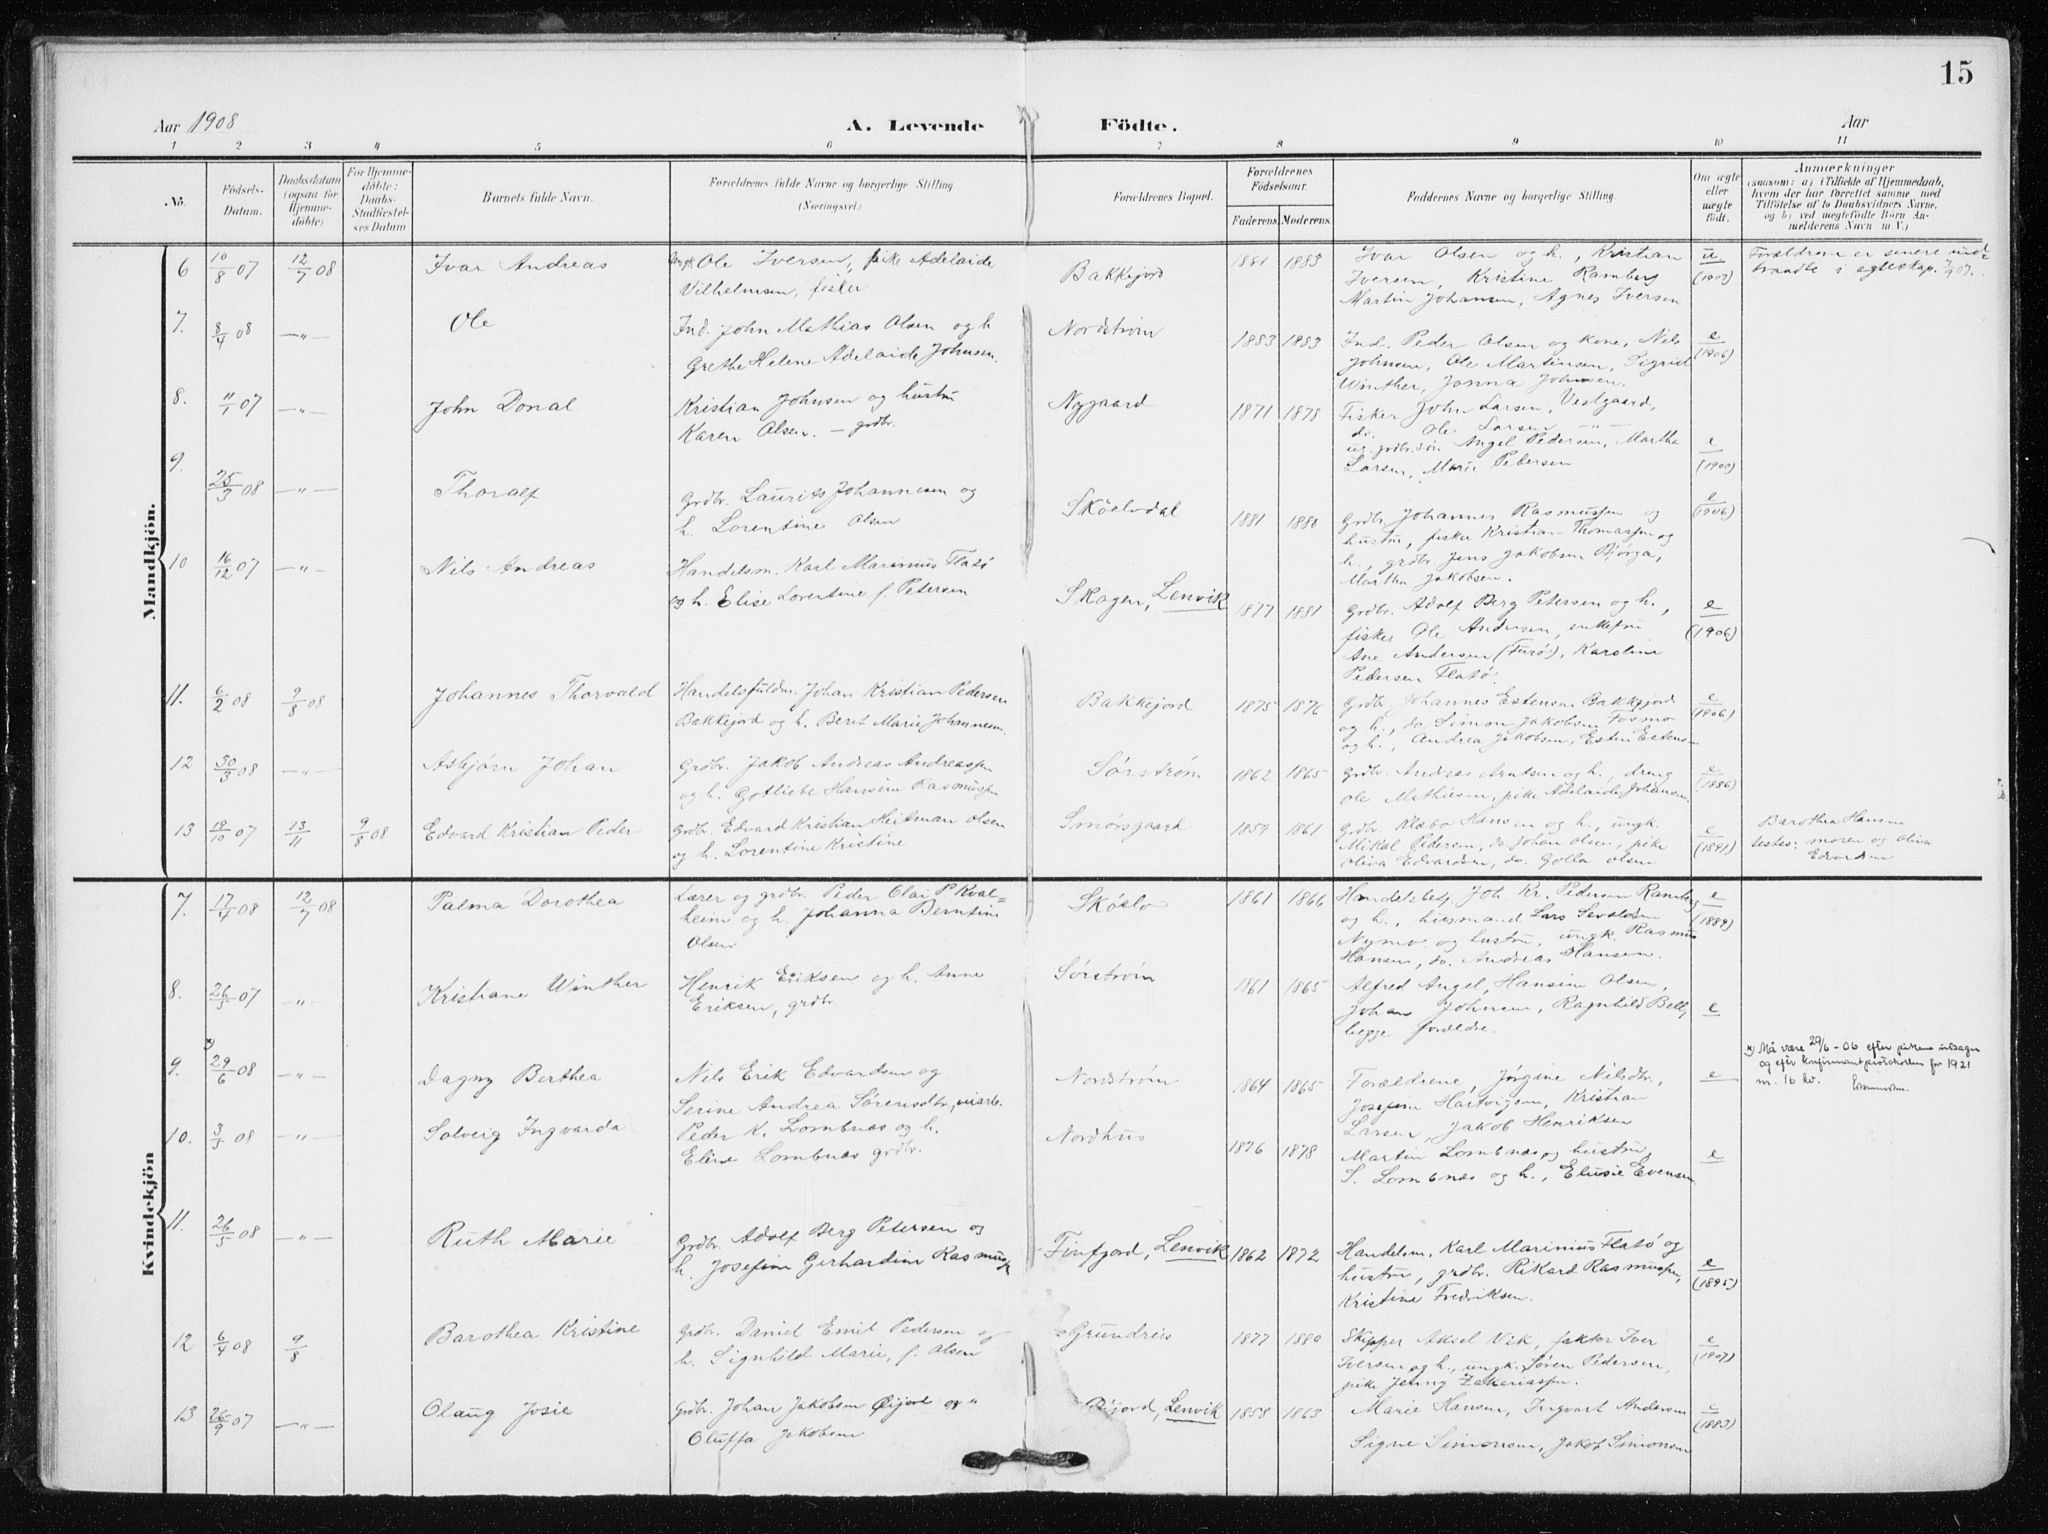 15
Aar 1908 A. Levende Födte. Aar
1 2 3 4 5 6 7 8 9 10 11
No. Födsels-Datum. Daabsdatum (ogsaa för Hjemmedöbte) For Hjemmedöbte: Daabs-Stadfæstelses Datum Barnets fulde Navn. Forældrenes fulde Navne og borgerlige Stilling (Næringsvei.) Forældrenes Bopæl. Forældrenes Födselsaar. Faderens. Moderens. Faddernes Navne og borgerlige Stilling. Om ægte eller uægte födt. Anmærkninger
(saasom: a) i Tilfælde af Hjemmedaab, hvem der har forrettet samme med Tilföielse af to Daabsvidners Navne, og b) ved uegtefödte Börn Anmelderens Navn m. V.)
Mandkjön.
6 10/8 07 12/7 08 Ivar Andreas Ungk. Ole Iversen, pike Adelaide
Vilhelmsen, fisker
Bakkejord 1881 1883 Ivar Olsen og h, Kristian
Iversen, Kristine Ramberg
Martin Johansen, Agnes Iversen
u (1907) Forældrene er senere indt
traadte i egteskap
7. 8/4 08 —"— Ole Ind. John Mathias Olsen og h
Grethe Helene Adelaide Johnsen.
Nordstrøm 1883 1883 Ind. Peder Olsen og kone, Nils
Johnsen, Ole Martinsen, Sigrid
Winther, Jonna Johnsen.
e (1906)
8. 11/1 07 —"— John Donal Kristian Johnsen og hustru
Karen Olsen. — grdbr.
Nygaard 1871 1875 Fisker John Larsen, Vestgaard,
do. Ole Larsen —"—
ug. grdbr.søn Angel Pedersen, Martha
Larsen, Marie Petersen
e (1900)
9. 25/3 08 —"— Thoralf Grdbr. Laurits Johannesen og
h. Lorentine Olsen
Sköelvdal 1881 1880 Grdbr. Johannes Rasmussen og
hustru, fisker Kristian Thomassen og
h., grdbr Jens Jakobsen Bjørga,
Martha Jakobsen.
e (1906)
10 16/12 07 —"— Nils Andreas Handelsm. Karl Marinius Flatø
og h. Elise Lorentine f. Petersen
Skogen, Lenvik 1877 1881 Grdbr. Adolf Berg Petersen og h.,
fisker Ole Andersen, enkefru
Ane Andersen (Furø), Karoline
Pedersen Flatø.
e (1906)
11. 6/2 08 9/8 08 Johannes Thorvald Handelsfuldm. Johan Kristian Pedersen
Bakkejord og h. Beret Marie Johannesen.
Bakkejord 1875 1876 Grdbr. Johannes Estensen Bakkejord
og h., do. Simon Jakobsen Fosmo
og h., Andrea Jakobsen, Esten Estens-
e (1906)
12 30/3 08 —"— Asbjørn Johan Grdbr. Jakob Andreas Andreassen
og h. Gotliebe Hansine Rasmussen
Sörströn 1862 1865 Grdbr. Andreas Arntsen og h., dreng
Ole Mathisen, pike Adelaide Johansen.
e (1886)
13 19/10 07 13/11 9/8 08 Edvard Kristian Peder Grdbr. Edvard Kristian Heitman Olsen
og h. Lorentine Kristine
Smörsgaard 1859 1861 Grdbr. Klæbo Hansen og h., ungk.
Mikal Pedersen, do. Johan Olsen, pike
Oliva Edvardsen, do. Golla Olsen
e (1891) Barothea Hansen
testes: moren og Oliva
Edvardsen
Kvindekjön
7. 17/4 08 12/7 08 Palma Dorothea Lærer og grdbr. Peder Olai P Kval=
heim og h. Johanna Berntine
Olsen
Sköelv 1861 1866 Handelsbetj. Joh. Kr. Pedersen Ramberg
og h., husmand Lars Sevaldsen
Nymo og hustru, ungk. Rasmus
Hansen, do. Andreas Hansen.
e (1889)
8. 26/5 07 —"— Kristiane Winther Henrik Eriksen og h. Anne
Eriksen, grdbr.
Sørstrøm 1861 1865 Alfred Angel, Hansine Olsen,
Johan Johnsen, Ragnhild Bell,
begge forældre.
e
9. x) 29/6 08 —"— Dagny Berthea Nils Erik Edvardsen og
Serine Andrea Sørensdtr,
Nordstrøm 1864 1865 Forældrene, Jørgine Nilsdtr.,
Josefine Hartvigsen, Kristian
Larsen, Jakob Henriksen
e x) Må være 29/6 - 06 efter pikens utsagn
og efter konfirmantprotokollen for 1921
m. 16 kv.
10. 3/5 08 —"— Solveig Ingvarda Peder K. Lombnæs og h.
Eline Lombnæs grdbr.
Nordhus 1876 1878 Martin Lombnæs og hustru,
S. Lombnæs og h., Elusie Evensen
e
11. 26/5 08 —"— Ruth Marie Grdbr. Adolf Berg Petersen og
h. Josefine Gerhardine Rasmuss
Finfjord, Lenvik 1862 1872 Handelsm. Karl Marinius Flatø og
hustru, grdbr. Rikard Rasmussen,
Kristine Fredriksen.
e (1895)
12 6/4 08 9/8 Barothea Kristine Grdbr. Daniel Emil Pedersen og
h. Signhild Marie, f. Olsen
Grundreis 1877 1880 Skipper Aksel Vik, faktor Iver
Iversen og h., ungk. Søren Pedersen,
pike Jenny Zakariassen.
e (1907)
13 26/9 07 —"— Olaug Josie Grdbr. Johan Jakobsen Øijord og "
Oluffa Jakobsen
Øijord, Lenvik 1858 1863 Marie Hansen, Ingvart Andersen
Signe Simonsen, Jakob Simonsen
e (1883)